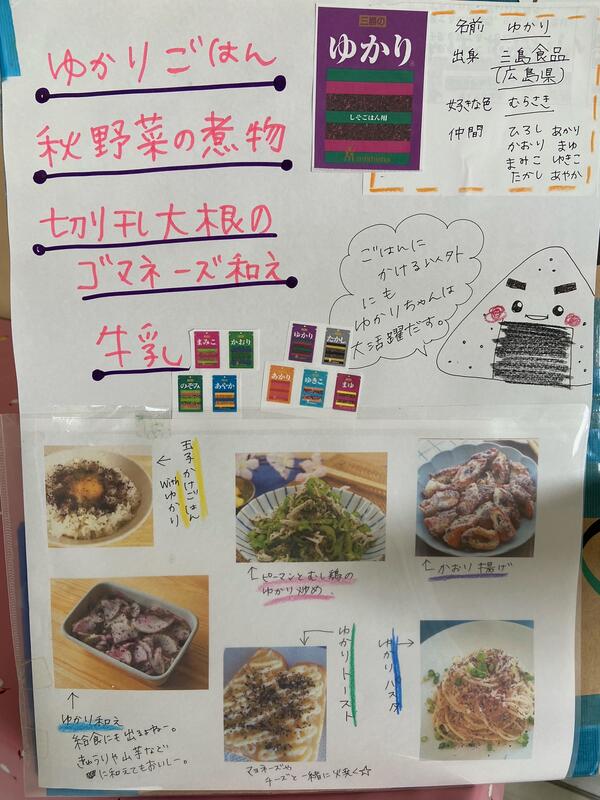 ゆかりごはん
秋野菜の煮物
切り干し大根の
ゴマネーズ和え
牛乳
三島の
ゆかり
しそごはん用
mishima
名前 ゆかり
出身 三島食品
(広島県)
好きな色 むらさき
仲間 ひろし あかり
かおり まゆ
まみこ ゆきこ
たかし あやか
ごはんに
かける以外
にも
ゆかりちゃんは
大活躍だす。
まみこ
かおり
ゆかり
たかし
のぞみ
あやか
あかり
ゆきこ
まゆ
← 玉子かけごはん
with ゆかり
↑ピーマンとむし鶏の
ゆかり炒め
↑かおり揚げ
↑
ゆかり和え
給食にも出るよねー。
きゅうりや山芋など
に和えてもおいしー。
ゆかりトースト
マヨネーズや
チーズと一緒に焼く☆
ゆかりパスタ